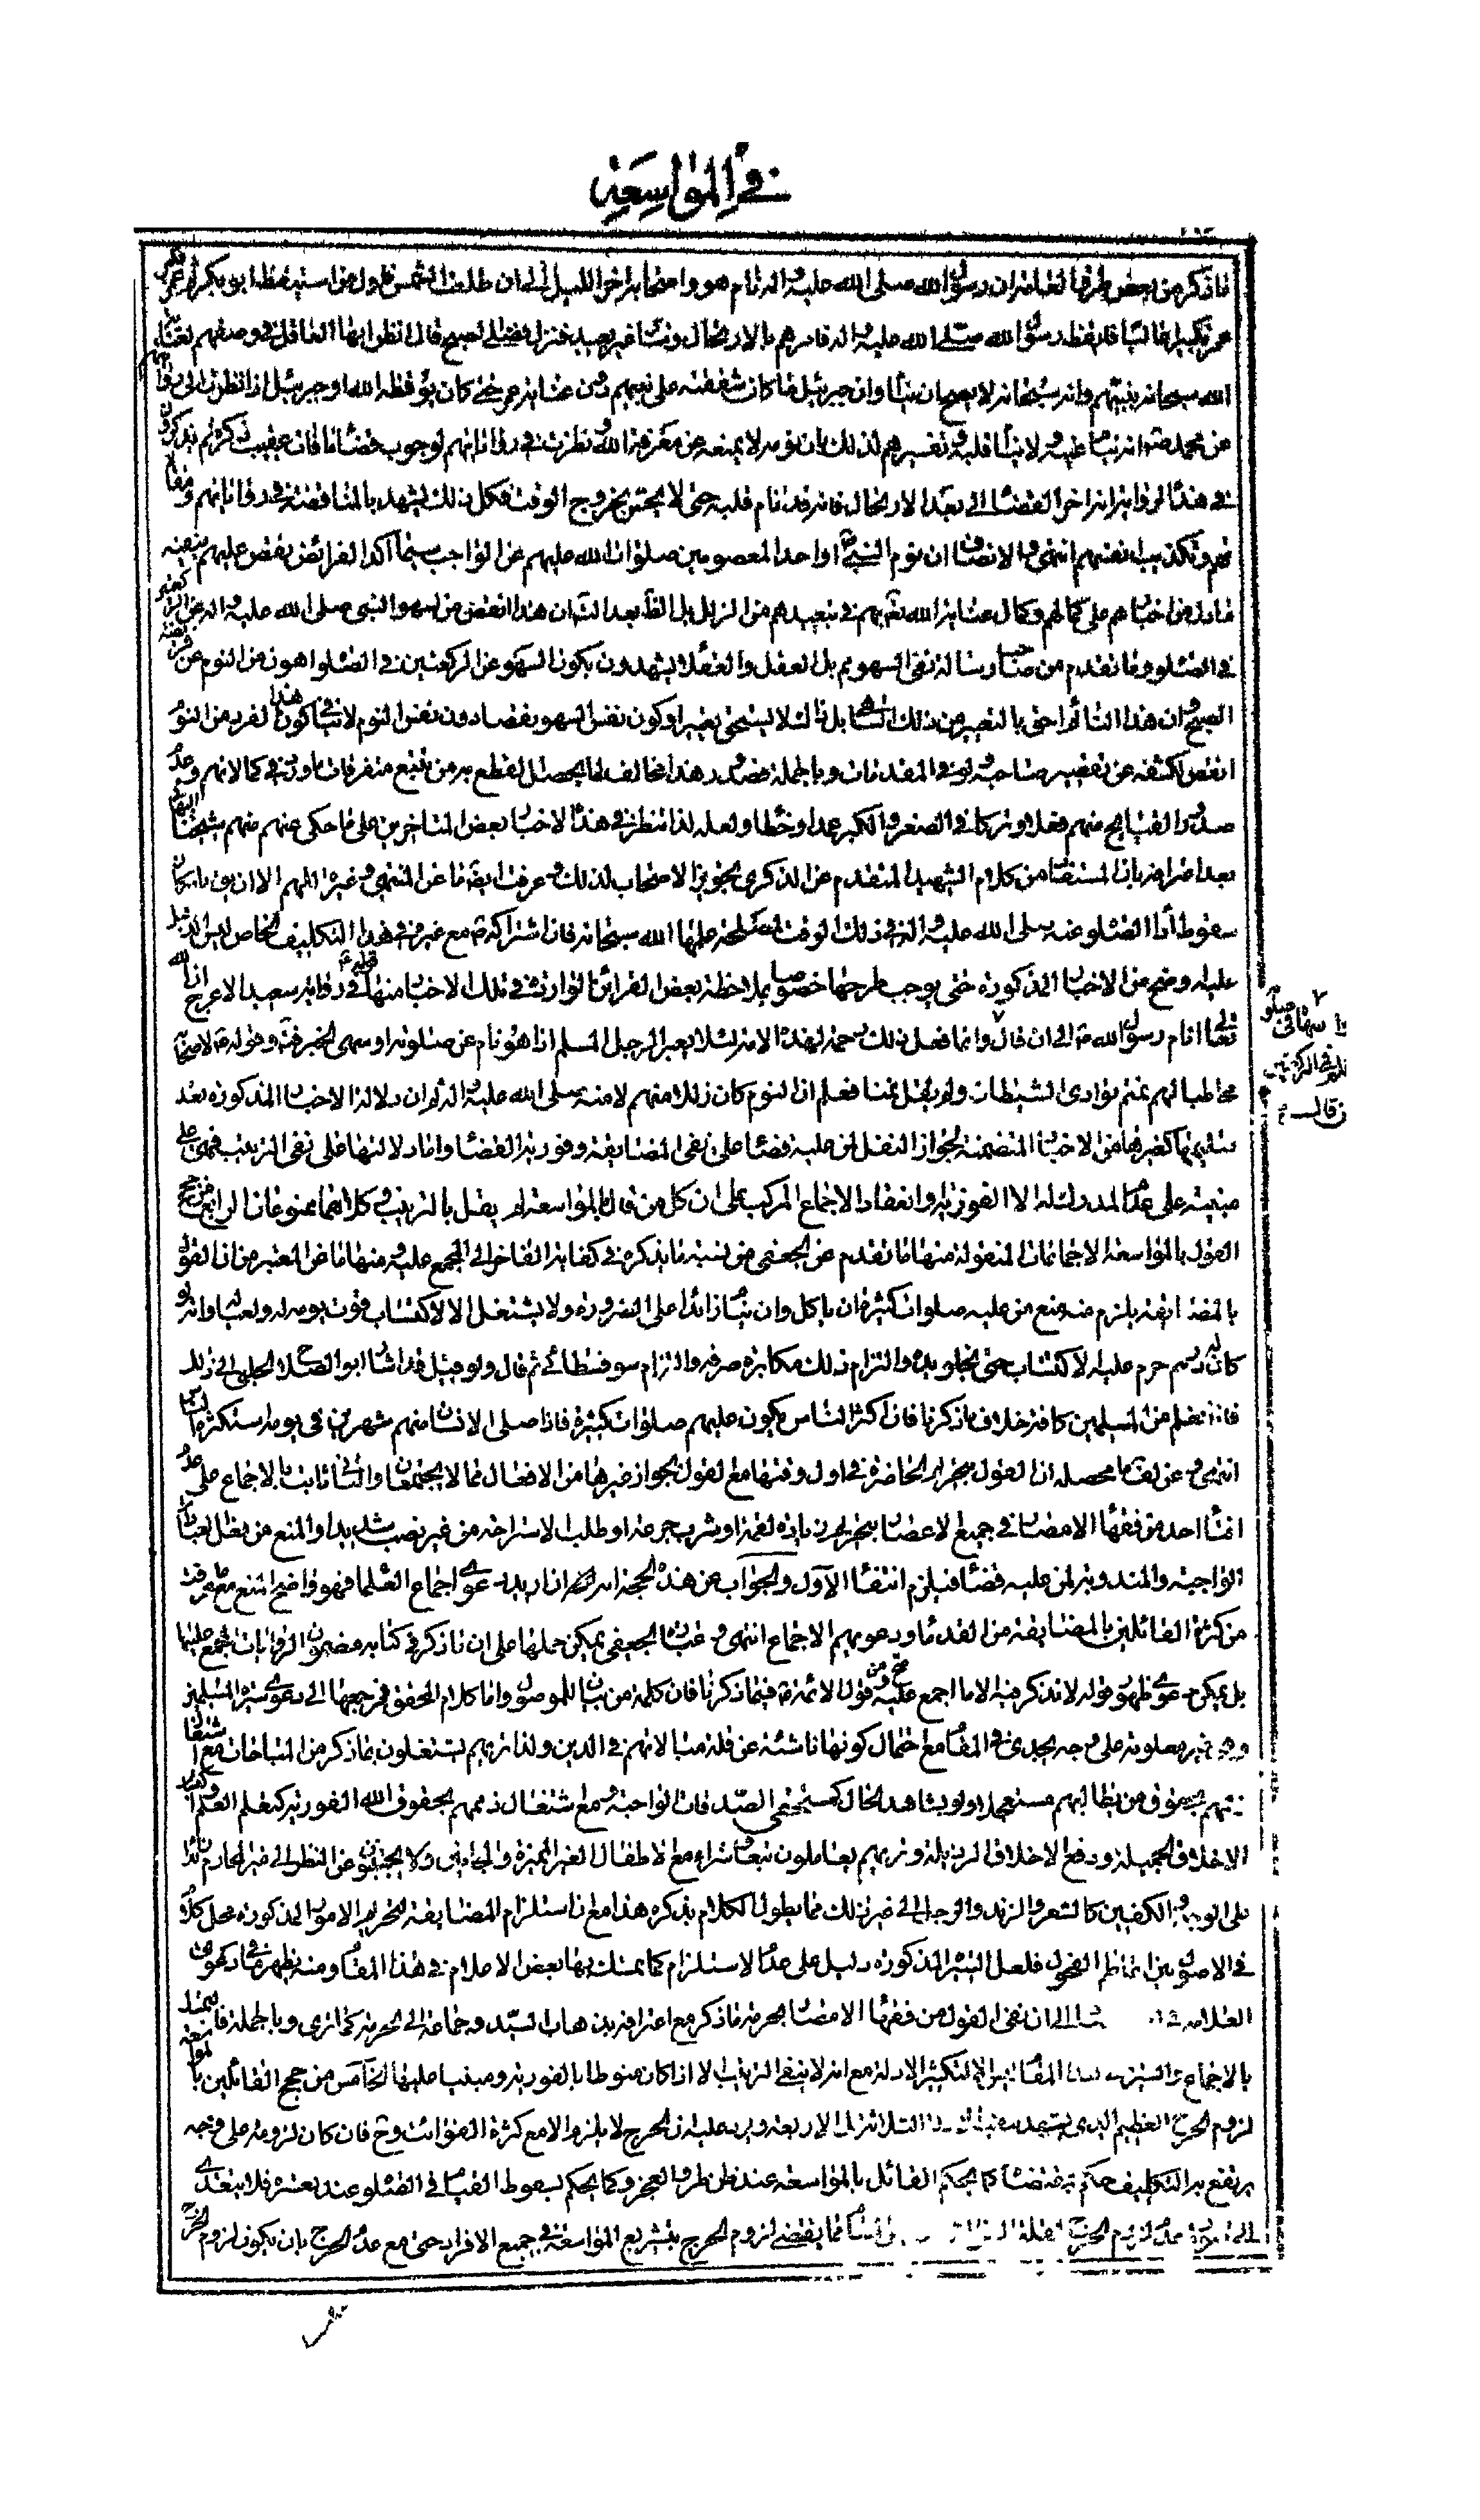 في المواسعة
ما ذكر من بعض طرقها لعله ان رسول الله صلى الله عليه واله نام هو واصحابه اخر الليل الى ان طلعت الشمس فاول من استيقظ ابو بكر ثم عمر فكبر
عمر تكبيرا غالبا فايقظ رسول الله صلى الله عليه واله فامرهم بالارتحال ونزل غير بعيد فنزل فصلى الصبح قال انظر ايها العاقل في وصفهم لعناية
الله سبحانه بنبيهم وانه سبحانه لا يصح ان ينام وان جبرئيل ما كان شفقته على نبيهم دون عناية عمر حتى كان يوقظه الله او جبرئيل اذا نظرت الى رواياتهم
عن محمد انه تنام عينيه لا ينام قلبه وتفسيرهم لذلك بان نومه لا يمنعه عن معرفة الله ونظرت في رواياتهم لوجوب قضاء ما فات عقيب ذكره ثم يذكرون
في هذه الرواية انه اخر القضاء الى بعد الارتحال فانه قد نام قلبه حتى لا يحس بخروج الوقت فكل ذلك يشهد بالمناقضة في رواياتهم
وتكذيب انفسهم انتهى والانصاف ان نوم النبي او احد المعصومين صلوات الله عليهم عن الواجب سيما اكد الفرائض نقص عليهم ينفيه
ما دل من اخبارهم على كمالهم وكمال عناية الله بهم في تبعيدهم من الزلل بل الظاهر بعد التامل ان هذا انقص من سهو النبي صلى الله عليه واله عن الركعتين
في الصلوة وما تقدم من صاحب رسالة نفي السهو بل العقل والعقلاء يشهدون بكون السهو عن الركعتين في الصلوة اهون من النوم عن فريضة
الصبح وان هذا النائم احق بالتعيير من ذلك الساهي بل ذلك لا يستحق تعييرا وكون نفس السهو نقصا دون نفس النوم لا ينافي كون هذا الفرد من النوم
انقص لكشفه عن تقصير صاحبه ولو في المقدمات وبالجملة فصدور هذا مخالف لما يحصل القطع به من تتبع متفرقات ما ورد في كمالاتهم وعدم
صدور القبايح منهم فعلا وتركا في الصغر والكبر عمدا وخطأ ولعله لذا تنظر في هذه الاخبار بعض المتاخرين على ما حكى عنهم منهم شيخنا البهائي
بعد اعترافه بان المستفاد من كلام الشهيد المتقدم عن الذكرى تجويز الاصحاب لذلك وعرفت ايضا ما عن المنتهى وغيره اللهم الا ان يق بامكان
سقوط اداء الصلوة عنه صلى الله عليه واله في ذلك الوقت لمصلحة علمها الله سبحانه فان اشتراكه مع غيره في هذا التكليف الخاص ليس الدليل
عليه اوضح من الاخبار المذكورة حتى يوجب طرحها خصوصا بملاحظة بعض القرائن الواردة في تلك الاخبار منها قوله في رواية سعيد الاعرج ان الله
تعالى انام رسول الله الى ان قال وانما فعل ذلك رحمة لهذه الامة لئلا يعير الرجل المسلم اذا هو نام عن صلوته او سهى الخبر فيه وقوله لاصحابه
مخاطبا لهم نمتم بوادي الشيطان ولم يقل نمنا فعلم ان النوم كان زللا منهم لا منه صلى الله عليه واله ثم ان دلالة الاخبار المذكورة بعد
تسليمها كغيرها من الاخبار المتضمنة لجواز النفل لمن عليه قضاء على نفي المضايقة وفورية القضاء واما دلالتها على نفي الترتيب فهي
مبنية على عدم المدرك له الا الفورية او انعقاد الاجماع المركب على ان كل من قال بالمواسعة لم يقل بالترتيب وكلاهما ممنوعان الرابع من حجج
القول بالمواسعة الاجماعات المنقولة منها ما تقدم عن الجعفي من نسبة ما يذكره في كتابه الفاخر الى المجمع عليه ومنها ما عن المعتبر من ان القول
بالمضايقة يلزم منه منع من عليه صلوات كثيرة ان ياكل وان ينام زائدا على الضرورة ولا يشتغل الا لاكتساب قوت يومه له ولعياله وانه لو
كان له درهم حرم عليه الاكتساب حتى يخلو يده والتزام ذلك مكابرة صرفة والتزام سوفسطائي ثم قال ولو قيل قد اشار ابو الصلاح الحلبي الى ذلك
قلنا نعلم من المسلمين كافة خلاف ما ذكرنا فان اكثر الناس يكون عليهم صلوات كثيرة فاذا صلى الانسان منهم شهرين في يومه استكثره الناس
انتهى وعن بعض ما محصله ان القول بتحريم الحاضرة في اول وقتها مع القول بجواز غيرها من الافعال مما لا يجتمعان والثاني ثابت بالاجماع على عدم
افتاء احد من فقهاء الامصار في جميع الاعصار بتحريم زيادة لقمة او شرب جرعة او طلب الاستراحة من غير نصب شديد او المنع من فعل العبادات
الواجبة والمندوبة لمن عليه قضاء فيلزم انتفاء الاول والجواب عن هذه الحجة ان اريد دعوى اجماع العلماء فهو واضح المنع مع ما عرفت
من كثرة القائلين بالمضايقة من القدماء ودعويهم الاجماع انتهى وعبارة الجعفي يمكن حملها على ان ما ذكر في كتابه مضمون الروايات المجمع عليها
بل يمكن دعوى ظهور قوله لا نذكر فيه الا ما اجمع عليه وصح من قول الائمة فيما ذكرنا فان كلمة من بيان للموصول واما كلام المحقق فمرجعها الى دعوى سيرة المسلمين
وهو غير معلومة على وجه يجدي في المقام مع احتمال كونها ناشئة عن قلة مبالاتهم في الدين ولذا تراهم يشتغلون بما ذكر من المباحات مع اشتغال
ذمتهم بحقوق من يطالبهم مستعجلا ولو بشاهد الحال كمستحقي الصدقات الواجبة ومع اشتغال ذممهم بحقوق الله الفورية كتعلم العلم وكسب
الاخلاق الجميلة ودفع الاخلاق الرذيلة وتريهم يعاملون بيعا وشراء مع الاطفال الغير المميزة والمجانين ولا يجتنبون عن النظر الى غير المحارم زائدا
على الوجه والكفين كالشعر والزند والرجل الى غير ذلك مما يطول الكلام بذكره هذا مع ان استلزام المضايقة لتحريم الامور المذكورة محل كلام
في الاصول بين اعاظم الفحول فلعل السيرة المذكورة دليل على عدم الاستلزام كما تمسك بها بعض الاعلام في هذا المقام ومنه يظهر ما في دعوى
العلامة ان نفي القول من فقهاء الامصار بحرمة ما ذكر مع اعترافه بذهاب السيد وجماعة الى الحرمة كما ترى وبالجملة فالتمسك
بالاجماع والسيرة المقام ليس الا لتكثير الادلة مع انه لا ينفي الترتيب الا اذا كان منوطا بالفورية ومبنيا عليها الخامس من حجج القائلين بالمواسعة
لزوم الحرج العظيم الذي الادلة الاربعة ويرد عليه ان الحرج لا يلزم الا مع كثرة الفوائت وح فان كان لزومه على وجه
يرتفع به التكليف حكم بمقتضاه كما يحكم القائل بالمواسعة عند ظن طرو العجز وكما يحكم بسقوط القيام في الصلوة عند تعسره فلا يتعدى
الى صورة عدم لزوم الحرج لقلة مما يقتضي لزوم الحرج بتشريع المواسعة في جميع الافراد حتى مع عدم الحرج بان يكون لزوم الحرج